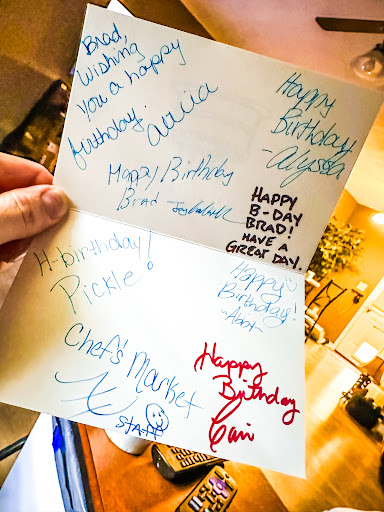 Brad,
Wishing
you a happy
birthday.
Alicia
Happy
Birthday
-Alyssa
Happy Birthday
Brad
HAPPY
B-DAY
BRAD!
HAVE A
GREAT DAY.
H-birthday!
Pickle!
Happy
Birthday!
Chef's Market
STAFF
Happy
Birthday